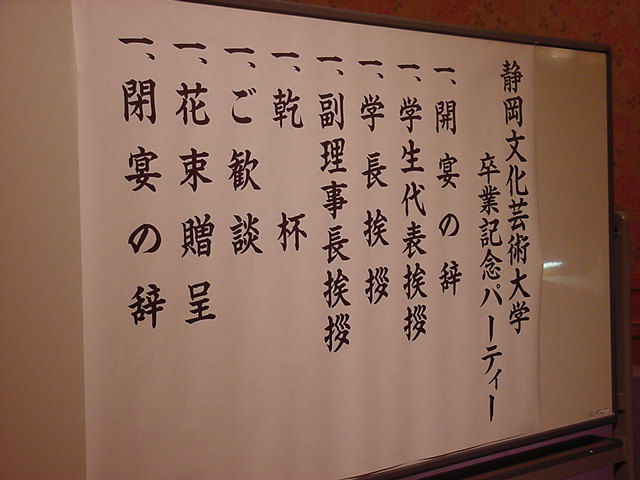 静岡文化芸術大学
卒業記念パーティー
一、開宴の辞
一、学生代表挨拶
一、学長挨拶
一、副理事長挨拶
一、乾杯
一、ご歓談
一、花束贈呈
一、閉宴の辞